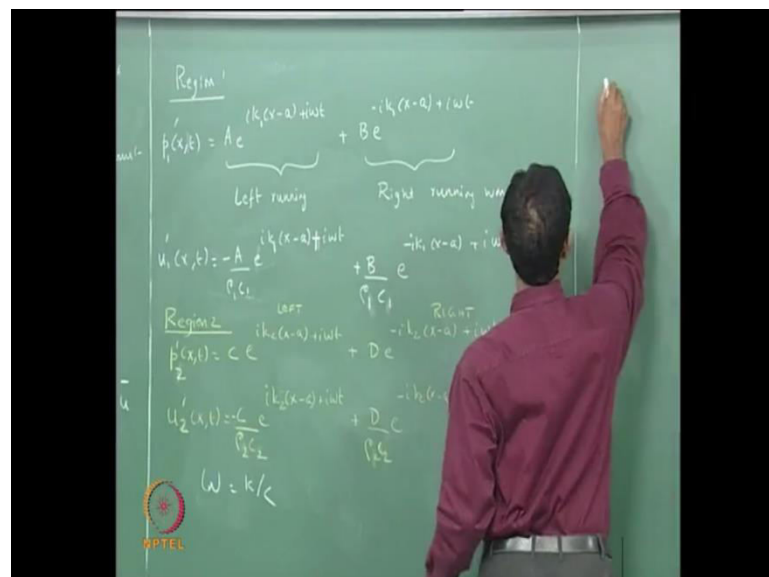 Regim 1
p₁'(x,t) = A e^{ik₁(x-a)+iωt} + B e^{-ik₁(x-a)+iωt}
Left running Right running
u₁'(x,t) = -A/ρ₁c₁ e^{ik₁(x-a)+iωt} + B/ρ₁c₁ e^{-ik₁(x-a)+iω
Regim 2
LEFT RIGHT
p₂'(x,t) = C e^{ik₂(x-a)+iωt} + D e^{-ik₂(x-a)+iωt
u₂'(x,t) = -C/ρ₂c₂ e^{ik₂(x-a)+iωt} + D/ρ₂c₂ e^{-ik₂(x-a)
ū
ω = k/c
NPTEL